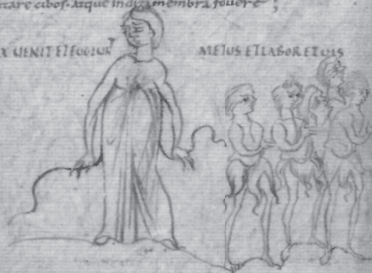 tare cibos. Atque indiga membra fouere ;
AX UENIT ET FUGIUNT METUS ET LABOR ET UIS